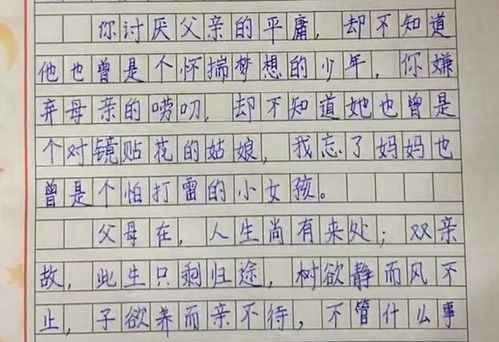 你讨厌父亲的平庸，却不知道
他也曾是个怀揣梦想的少年，你嫌
弃母亲的唠叨，却不知道她也曾是
个对镜贴花的姑娘，我忘了妈妈也
曾是个怕打雷的小女孩。
父母在，人生尚有来处；双亲
故，此生只剩归途，树欲静而风不
止，子欲养而亲不待，不管什么事